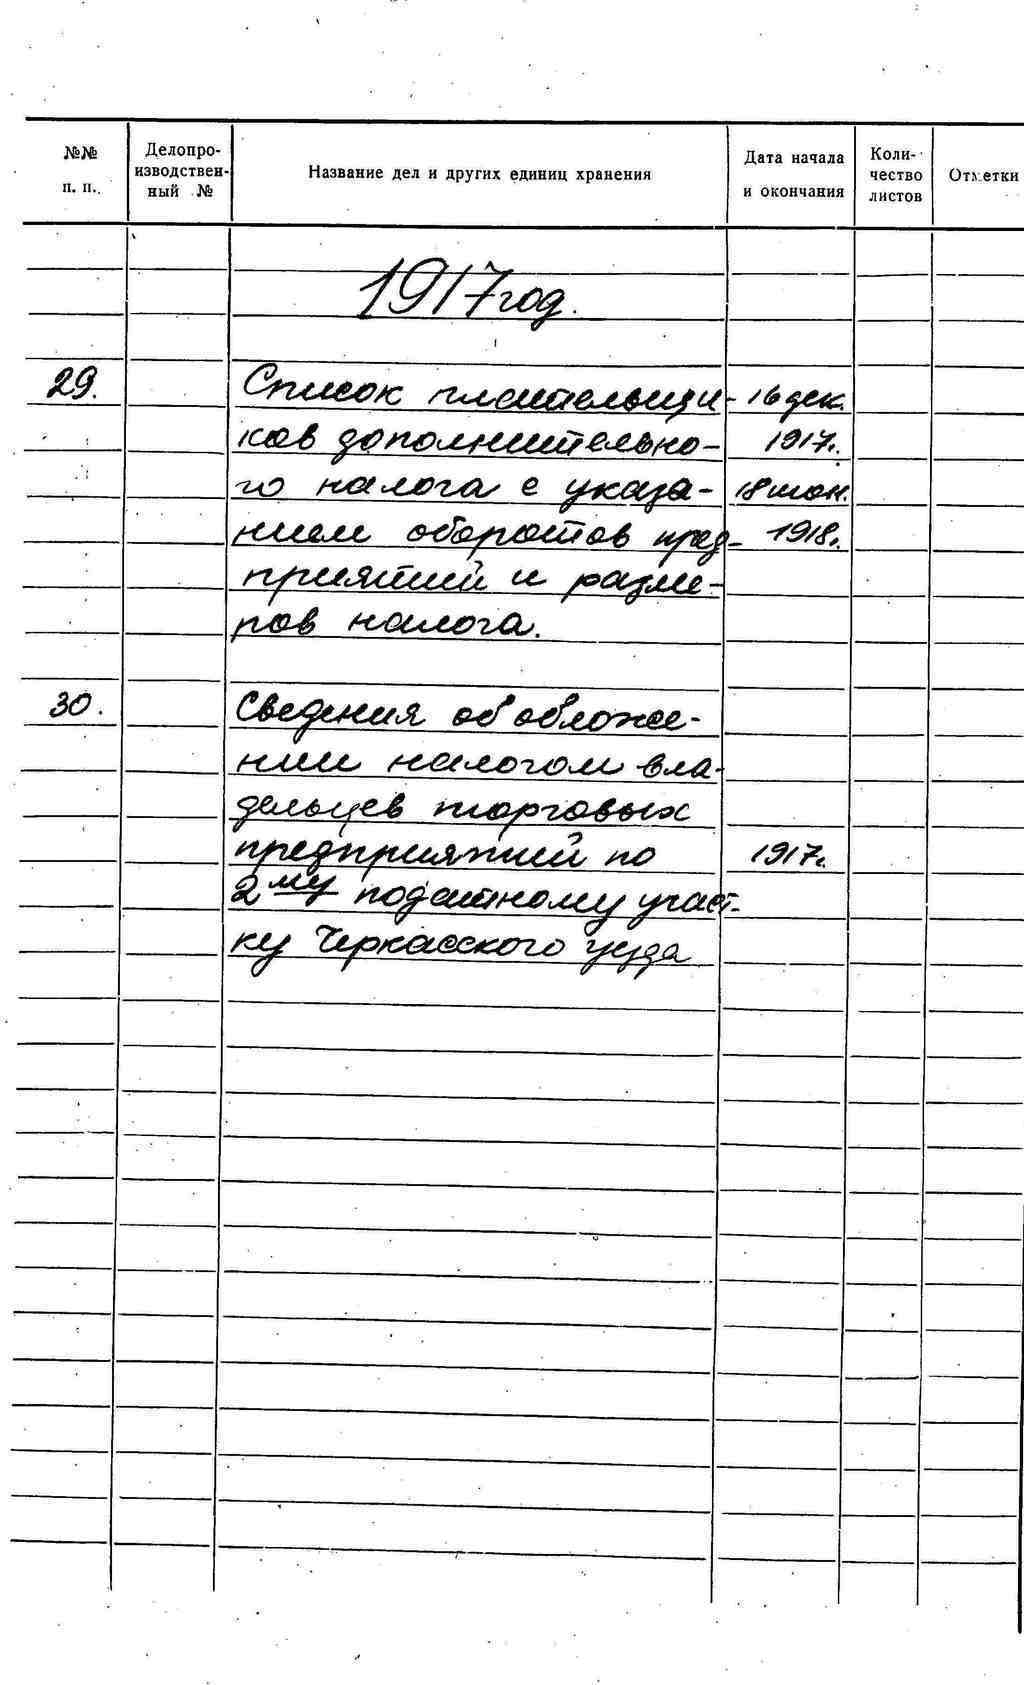 №№ п. п. Делопроизводственный № Название дел и других единиц хранения Дата начала и окончания Количество листов Отметки
1917 год.
29. Список плательщи- 16 дек.
ков дополнительно- 1917г.
го налога с указа- 18 июн.
нием оборотов пред- 1918г.
приятий и разме-
ров налога.
30. Сведения об обложе-
нии налогом вла-
дельцев торговых
предприятий по 1917г.
2му податному участ-
ку Черкасского уезда